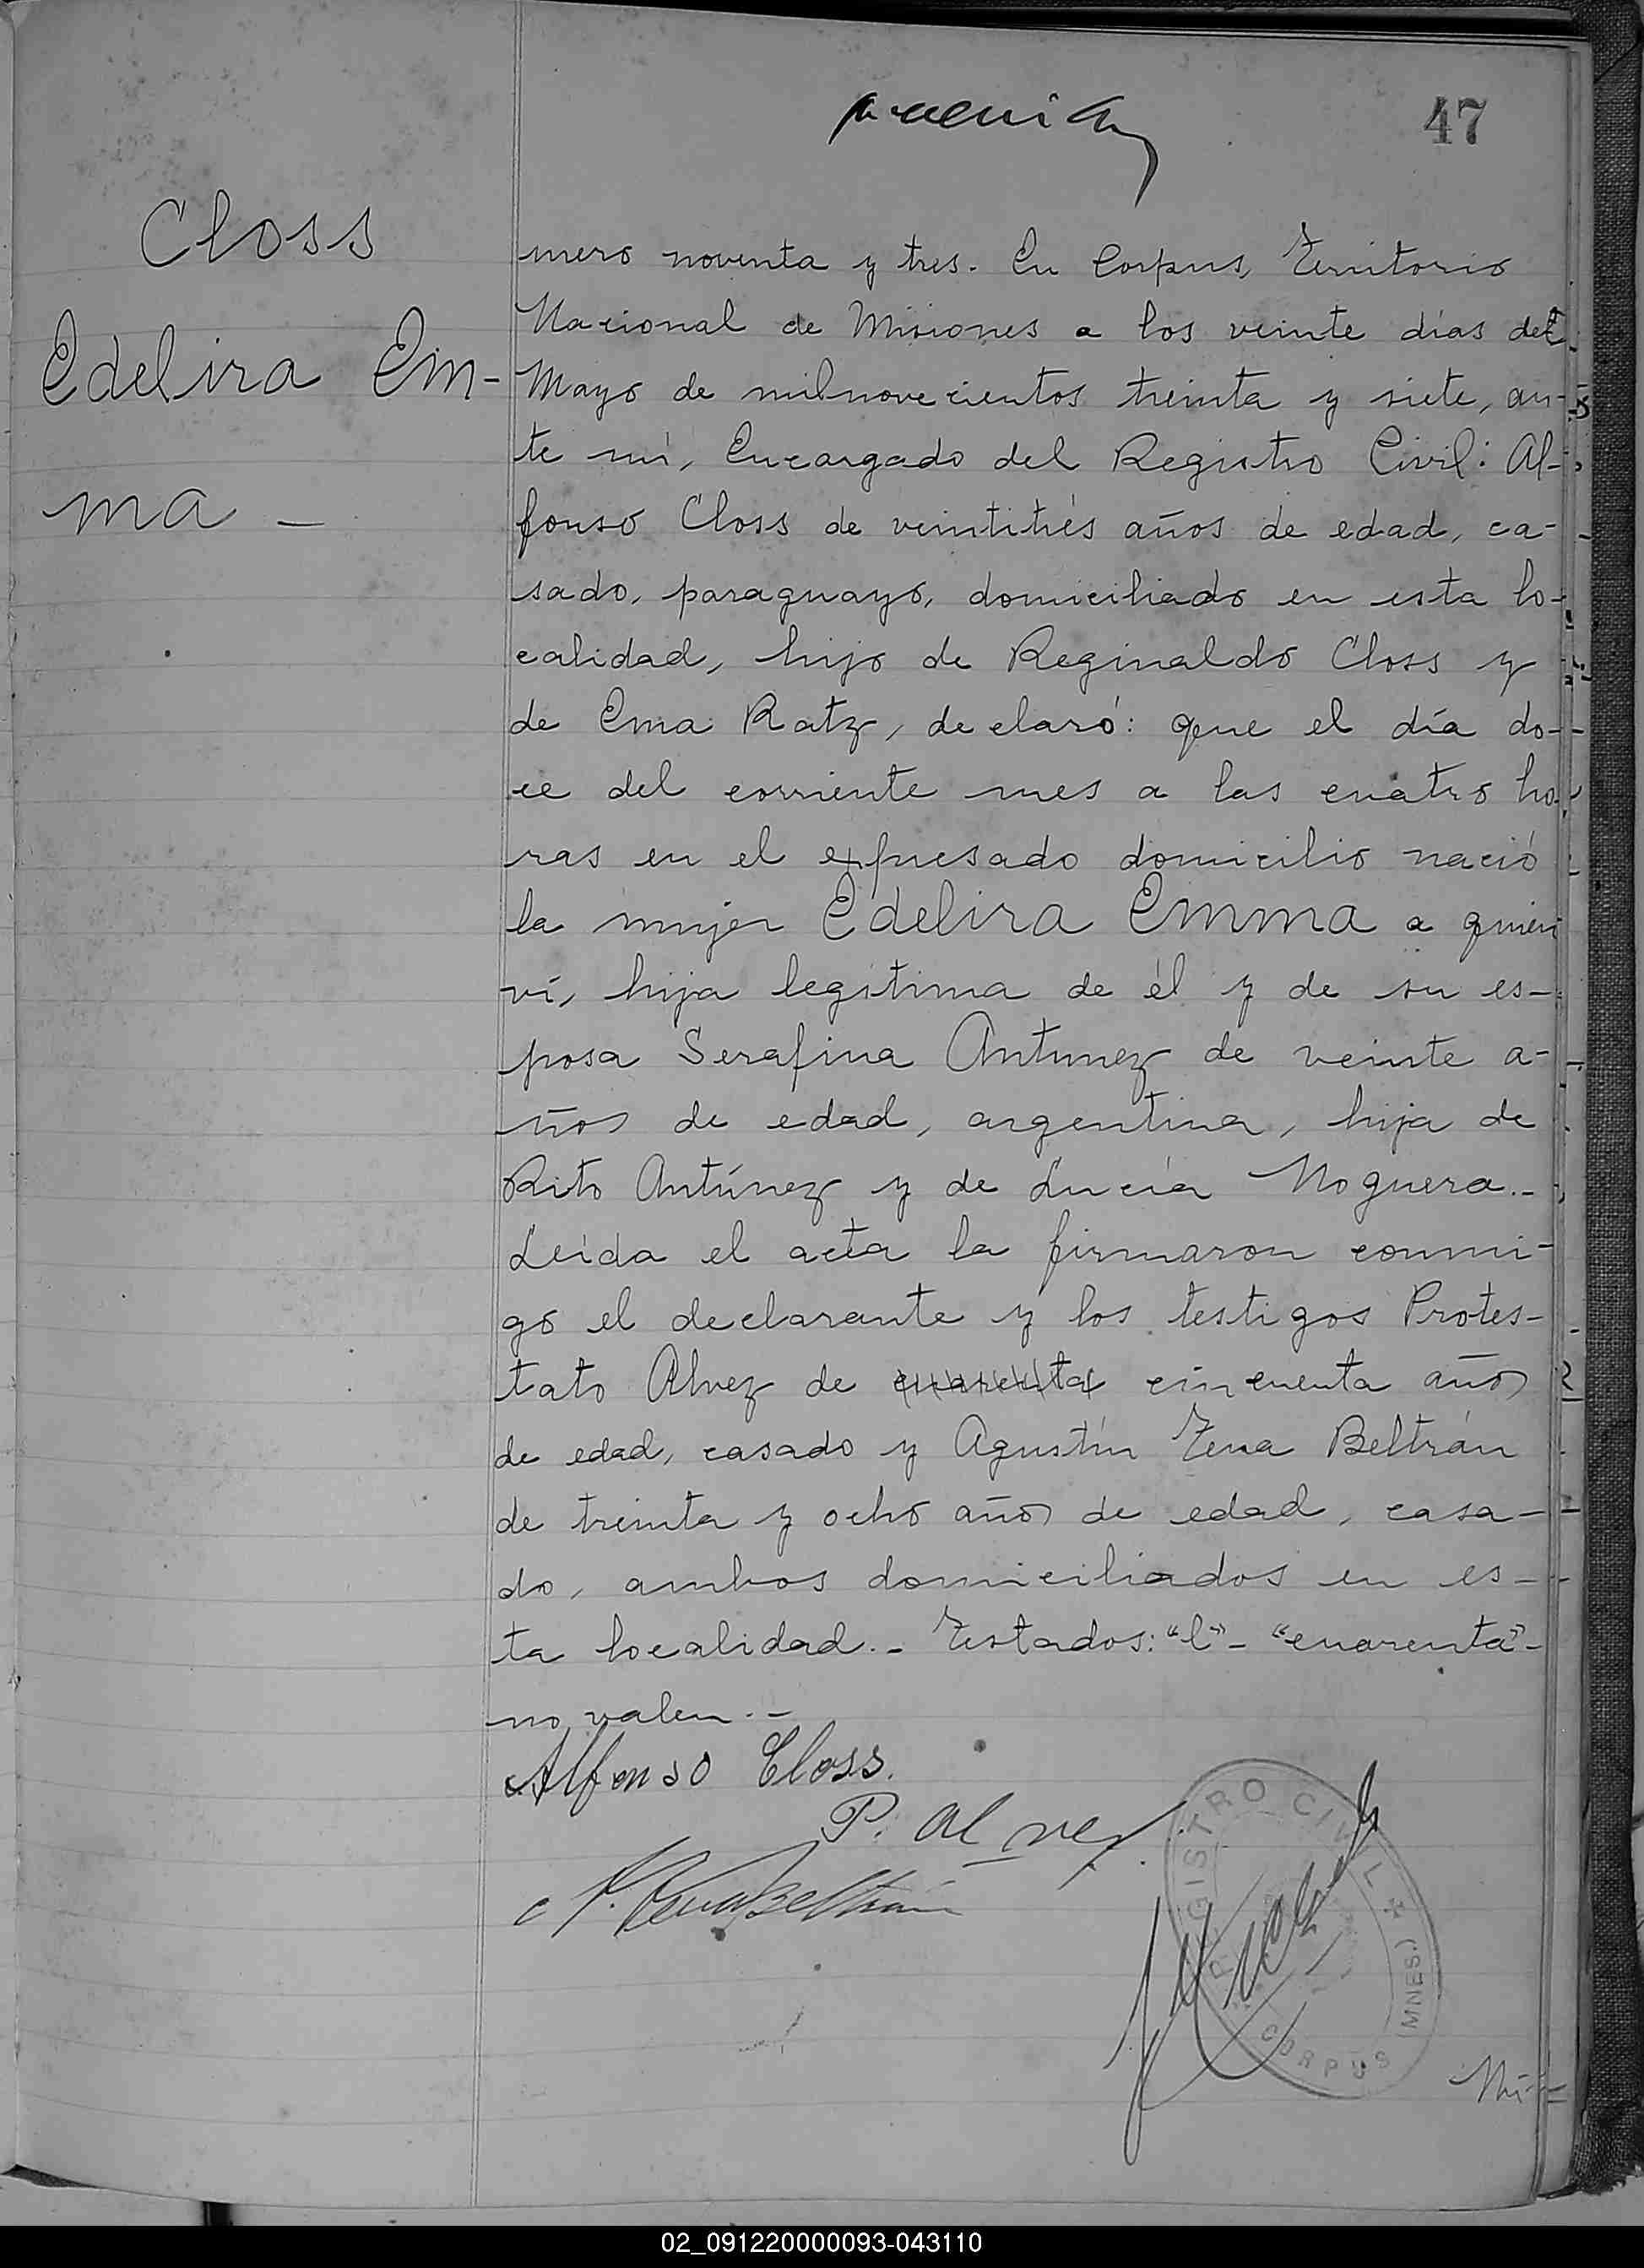 47
Closs
Edelira Em-
ma -
mero noventa y tres. En Corpus, Territorio
Nacional de Misiones a los veinte días del
Mayo de milnovecientos treinta y siete, an-
te mí, Encargado del Registro Civil: Al-
fonso Closs de veintitrés años de edad, ca-
sado, paraguayo, domiciliado en esta lo-
calidad, hijo de Reginaldo Closs y
de Ema Ratz, declaró: que el día do-
ce del corriente mes a las cuatro ho-
ras en el expresado domicilio nació
la mujer Edelira Emma a quien
ví, hija legítima de él y de su es-
posa Serafina Antunez de veinte a-
ños de edad, argentina, hija de
Rito Antúnez y de Lucía Noguera.-
Leída el acta la firmaron conmi-
go el declarante y los testigos Protes-
tato Alvez de cuarenta cincuenta años
de edad, casado y Agustín Tena Beltrán
de treinta y ocho años de edad, casa-
do, ambos domiciliados en es-
ta localidad.- Testados: "l"- "cuarenta"-
no valen.-
Alfonso Closs.
P. Alvez.
A. Tena Beltrán
REGISTRO CIVIL
CORPUS (MNES.)
Nú-
02_091220000093-043110